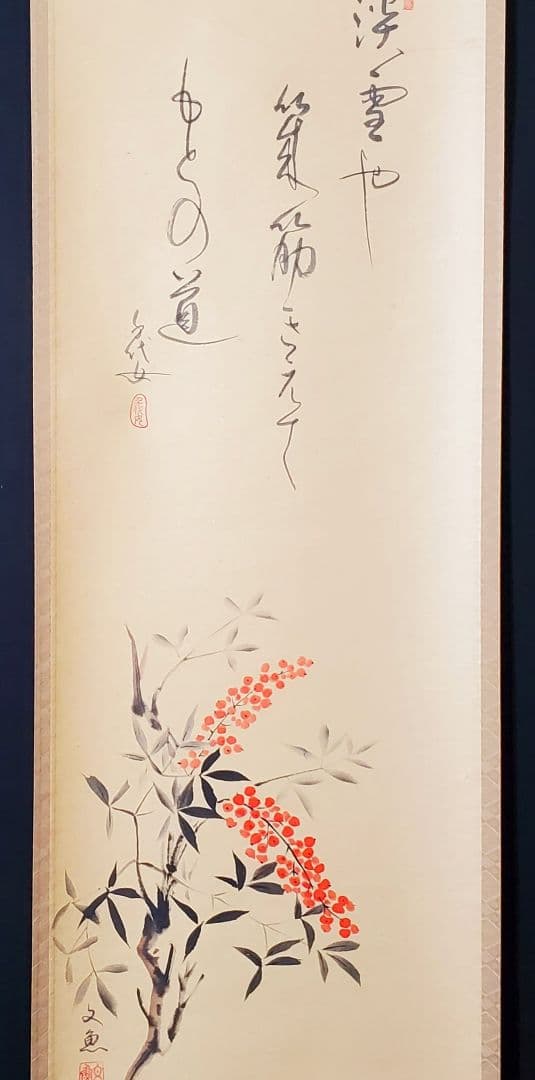 淡雪や
幾筋きえて
もとの道
千代女
文魚